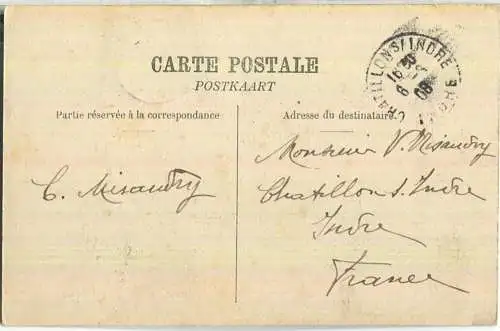 CARTE POSTALE
POSTKAART
Partie réservée à la correspondance
Adresse du destinataire.
C. Misandry
Monsieur V. Misandry
Chatillon s. Indre
Indre
France
CHATILLON S/ INDRE
16 30
6
08
INDRE